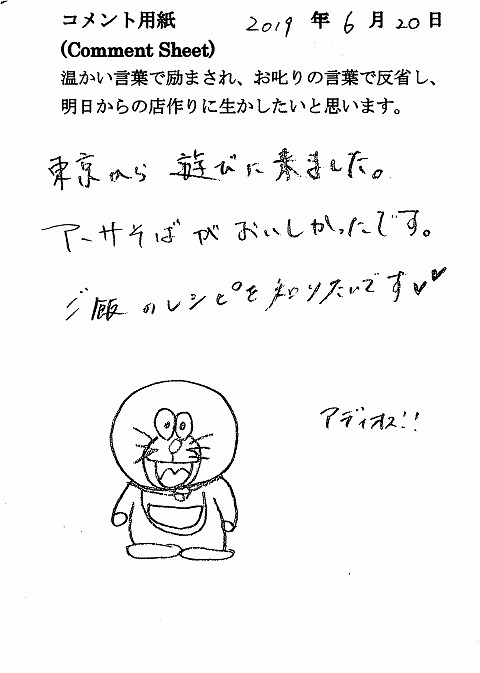 コメント用紙 2019 年 6 月 20 日
(Comment Sheet)
温かい言葉で励まされ、お叱りの言葉で反省し、
明日からの店作りに生かしたいと思います。
東京から 遊びに来ました。
アーサそばがおいしかったです。
ご飯のレシピを知りたいです♥♥
アディオス!!